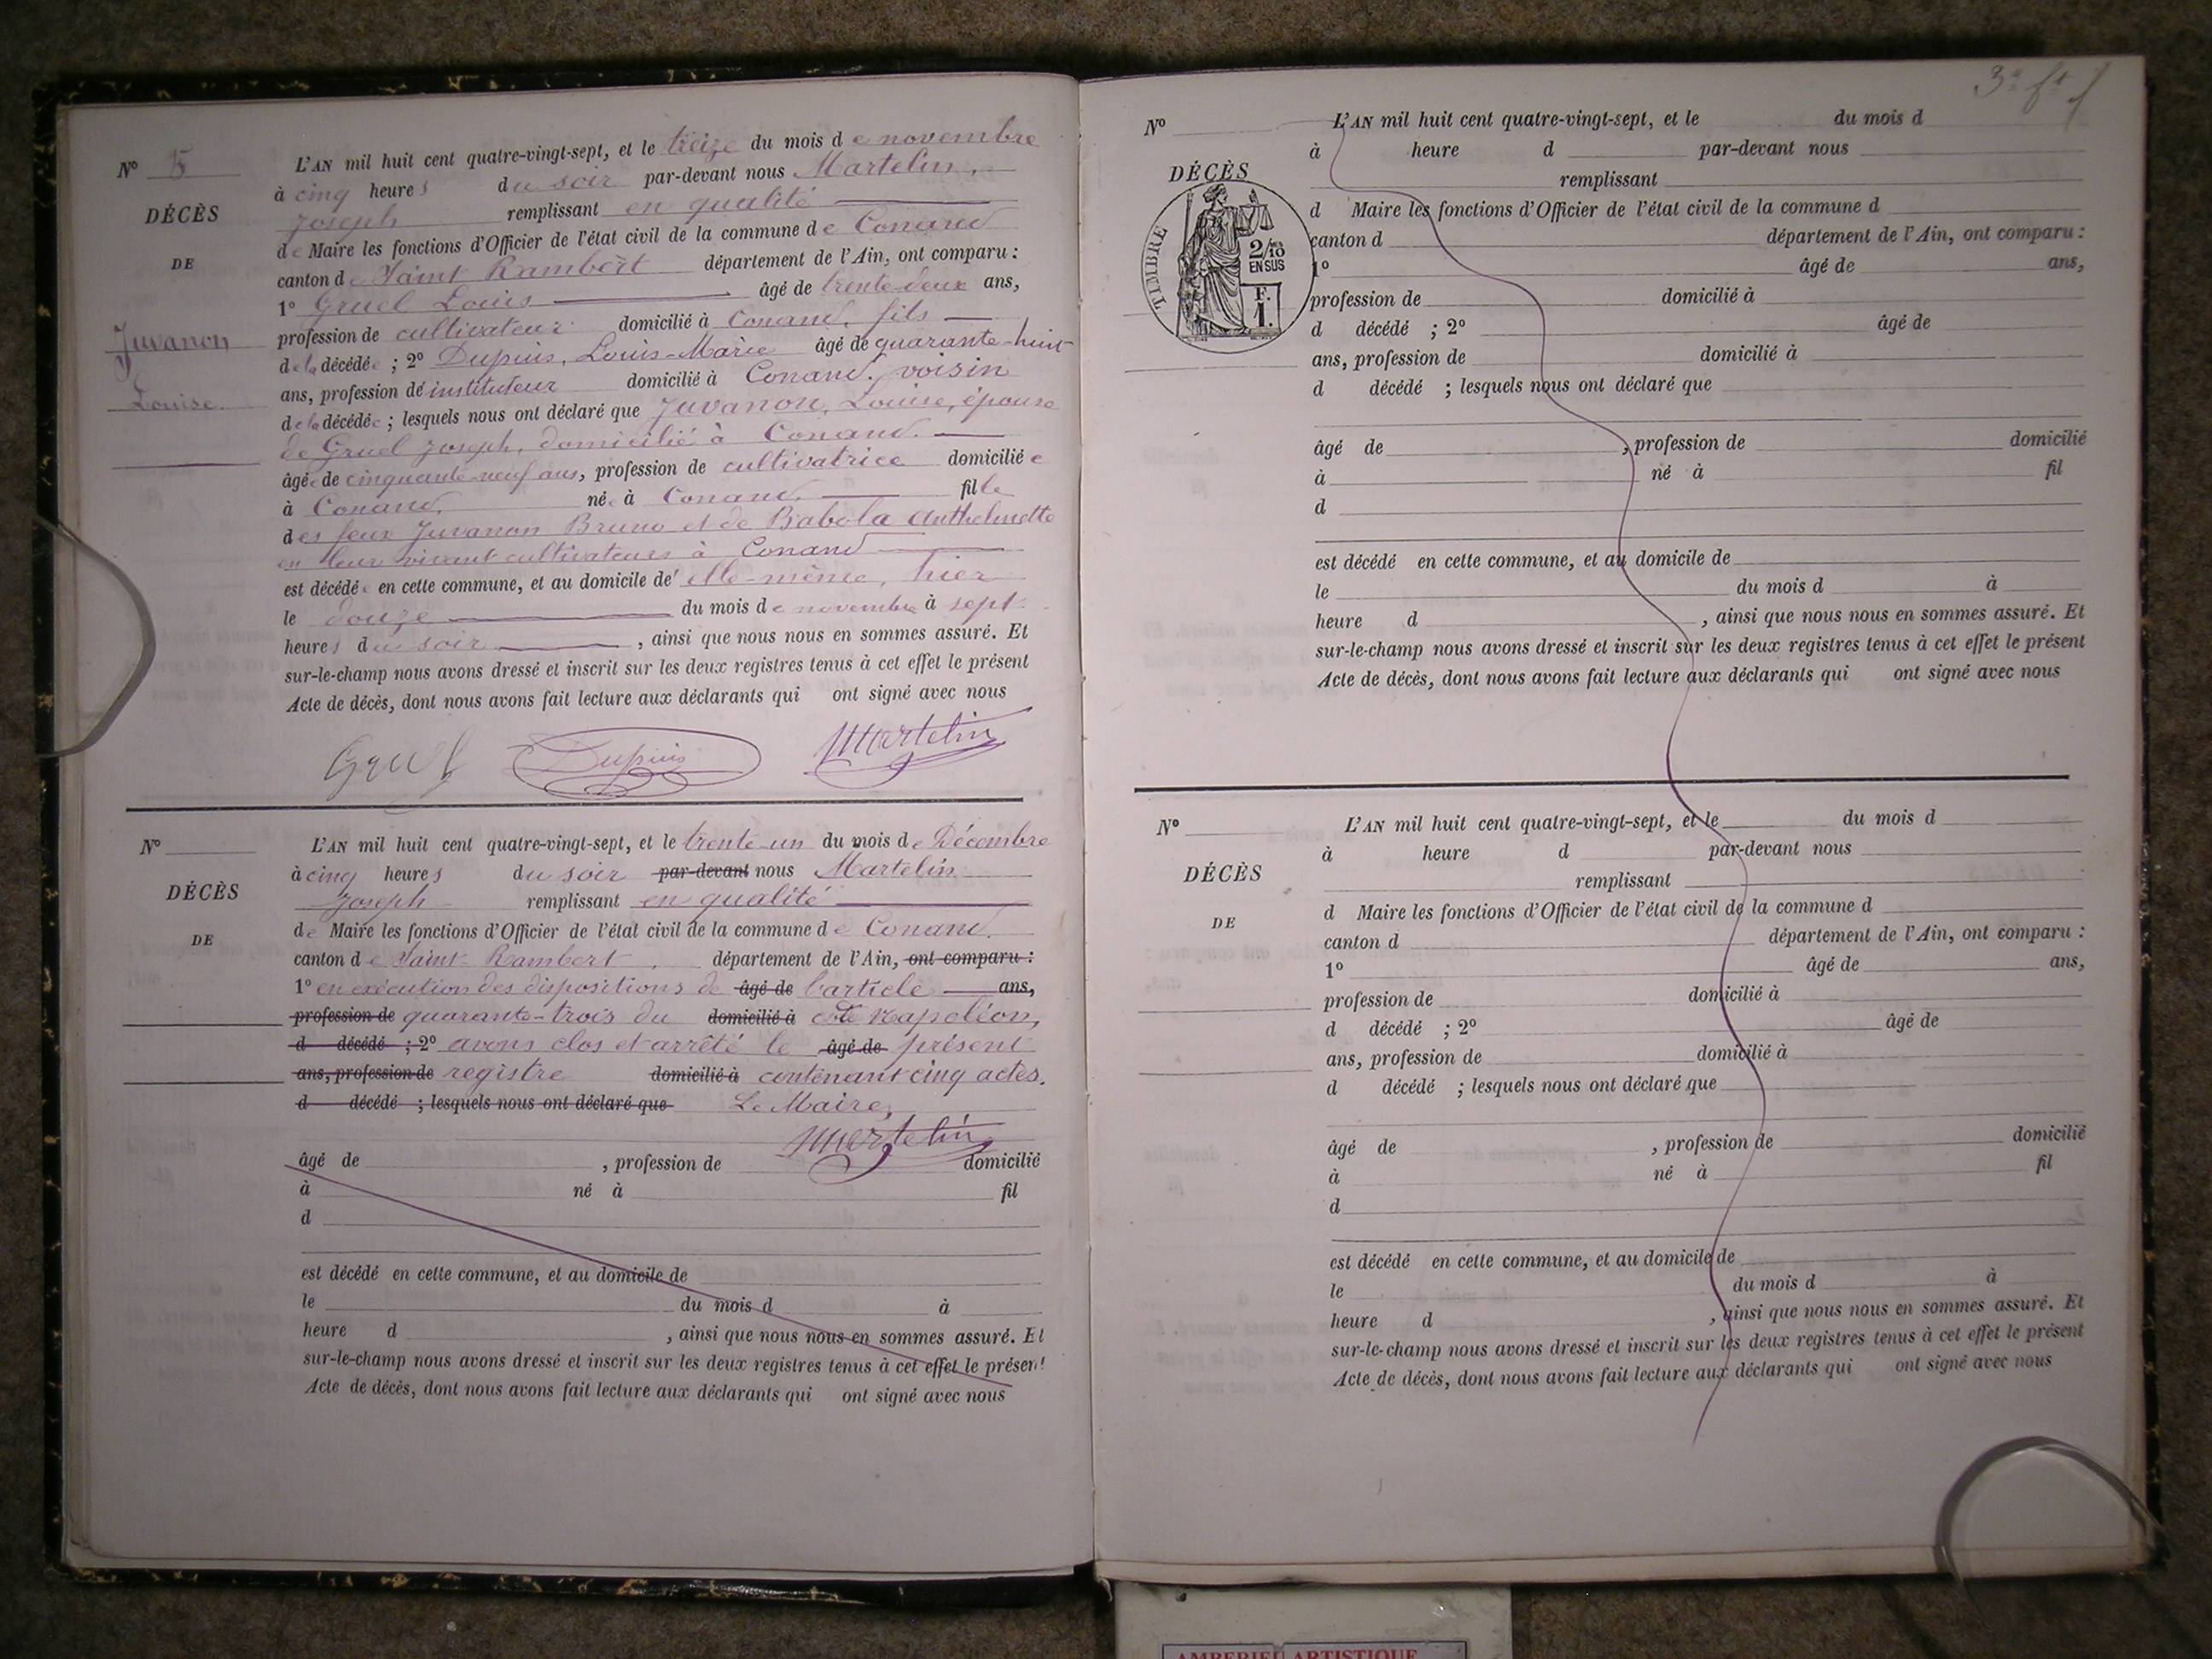 N° 5
DÉCÈS
DE
Juvanon
Louise.
L'AN mil huit cent quatre-vingt-sept, et le treize du mois de novembre
à cinq heures du soir par-devant nous Martelin,
Joseph remplissant en qualité
de Maire les fonctions d'Officier de l'état civil de la commune de Conand
canton de Saint Rambert département de l'Ain, ont comparu :
1° Gruel Louis âgé de trente-deux ans,
profession de cultivateur domicilié à Conand, fils
de la décédée ; 2° Dupuis, Louis-Marie âgé de quarante-huit
ans, profession de instituteur domicilié à Conand, voisin
de la décédée ; lesquels nous ont déclaré que Juvanon, Louise, épouse
de Gruel Joseph, domicilié à Conand.
âgée de cinquante-neuf ans, profession de cultivatrice domiciliée
à Conand, née à Conand, fille
des feux Juvanon Bruno et de Babola Anthelmette
en leur vivant cultivateurs à Conand
est décédée en cette commune, et au domicile de elle-même, hier
le douze du mois de novembre à sept
heures du soir, ainsi que nous nous en sommes assuré. Et
sur-le-champ nous avons dressé et inscrit sur les deux registres tenus à cet effet le présent
Acte de décès, dont nous avons fait lecture aux déclarants qui ont signé avec nous
Gruel Dupuis Martelin
N°
DÉCÈS
DE
L'AN mil huit cent quatre-vingt-sept, et le trente-un du mois de Décembre
à cinq heures du soir par-devant nous Martelin
Joseph remplissant en qualité
de Maire les fonctions d'Officier de l'état civil de la commune de Conand.
canton de Saint-Rambert, département de l'Ain, ont comparu :
1° en exécution des dispositions de âgé de l'article ans,
profession de quarante-trois du domicilié à Napoléon,
d décédé ; 2° avons clos et arrêté le âgé de présent
ans, profession de registre domicilié à contenant cinq actes.
d décédé ; lesquels nous ont déclaré que Le Maire,
Martelin
âgé de , profession de domicilié
à né à fil
d
est décédé en cette commune, et au domicile de
le du mois d à
heure d , ainsi que nous nous en sommes assuré. Et
sur-le-champ nous avons dressé et inscrit sur les deux registres tenus à cet effet le présent
Acte de décès, dont nous avons fait lecture aux déclarants qui ont signé avec nous
N°
DÉCÈS
TIMBRE
2/10
EN SUS
F.
1.
L'AN mil huit cent quatre-vingt-sept, et le du mois d
à heure d par-devant nous
remplissant
d Maire les fonctions d'Officier de l'état civil de la commune d
canton d département de l'Ain, ont comparu :
1° âgé de ans,
profession de domicilié à
d décédé ; 2° âgé de
ans, profession de domicilié à
d décédé ; lesquels nous ont déclaré que
âgé de , profession de domicilié
à né à fil
d
est décédé en cette commune, et au domicile de
le du mois d à
heure d , ainsi que nous nous en sommes assuré. Et
sur-le-champ nous avons dressé et inscrit sur les deux registres tenus à cet effet le présent
Acte de décès, dont nous avons fait lecture aux déclarants qui ont signé avec nous
N°
DÉCÈS
DE
L'AN mil huit cent quatre-vingt-sept, et le du mois d
à heure d par-devant nous
remplissant
d Maire les fonctions d'Officier de l'état civil de la commune d
canton d département de l'Ain, ont comparu :
1° âgé de ans,
profession de domicilié à
d décédé ; 2° âgé de
ans, profession de domicilié à
d décédé ; lesquels nous ont déclaré que
âgé de , profession de domicilié
à né à fil
d
est décédé en cette commune, et au domicile de
le du mois d à
heure d , ainsi que nous nous en sommes assuré. Et
sur-le-champ nous avons dressé et inscrit sur les deux registres tenus à cet effet le présent
Acte de décès, dont nous avons fait lecture aux déclarants qui ont signé avec nous
AMBERIEU ARTISTIQUE